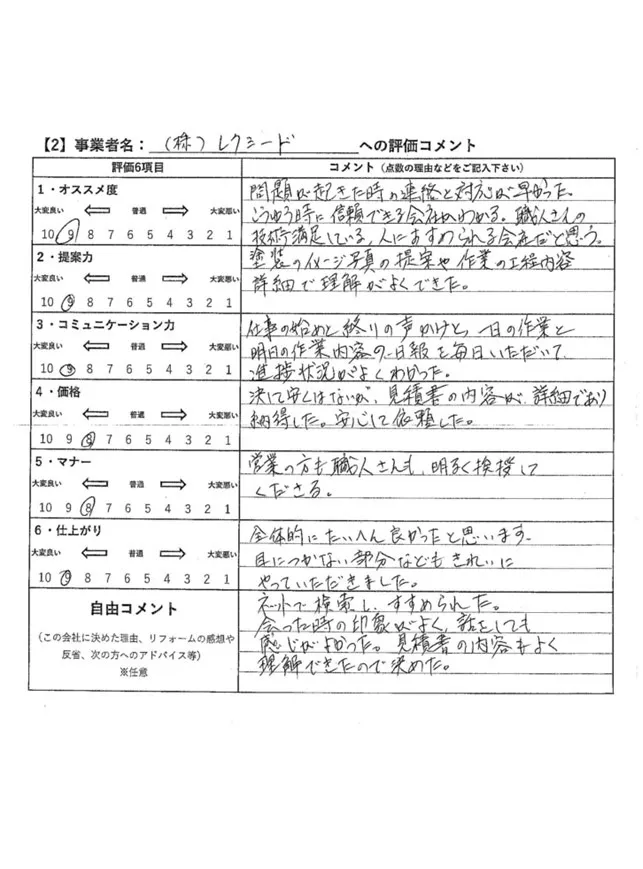 【2】事業者名：（株）レクシード への評価コメント
評価6項目 コメント（点数の理由などをご記入下さい）
1・オススメ度
大変良い 普通 大変悪い
10 9 8 7 6 5 4 3 2 1
問題が起きた時の連絡と対応が早かった。
こうゆう時に信頼できる会社かわかる。職人さんの
技術で満足している。人におすめられる会社だと思う。
2・提案力
大変良い 普通 大変悪い
10 9 8 7 6 5 4 3 2 1
塗装のイメージ写真の提案や作業の工程内容
詳細で理解がよくできた。
3・コミュニケーション力
大変良い 普通 大変悪い
10 9 8 7 6 5 4 3 2 1
仕事の始めと終りの声かけと、一日の作業と
明日の作業内容の日報を毎日いただいて
進捗状況がよくわかった。
4・価格
大変良い 普通 大変悪い
10 9 8 7 6 5 4 3 2 1
決して安くはないが、見積書の内容が、詳細であり
納得した。安心して依頼した。
5・マナー
大変良い 普通 大変悪い
10 9 8 7 6 5 4 3 2 1
営業の方も職人さんも、明るく挨拶して
くださる。
6・仕上がり
大変良い 普通 大変悪い
10 9 8 7 6 5 4 3 2 1
全体的にたいへん良かったと思います。
目につかない部分などもきれいに
やっていただきました。
自由コメント
（この会社に決めた理由、リフォームの感想や
反省、次の方へのアドバイス等）
※任意
ネットで検索し、すすめられた。
会った時の印象がよく、話をしても
感じがよかった。見積書の内容もよく
理解できたので決めた。